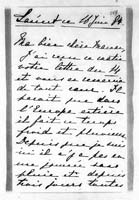 Ma bien
J'ai reçu ce matin
votre lettre du 14
et vous en remercie
de tout cœur. Il
paraît que dans
l'Europe entière
il fait un temps
froid et pluvieux
Depuis que je suis
ici il n'y a pas eu
une journée sans
pluie et depuis
trois jours toutes